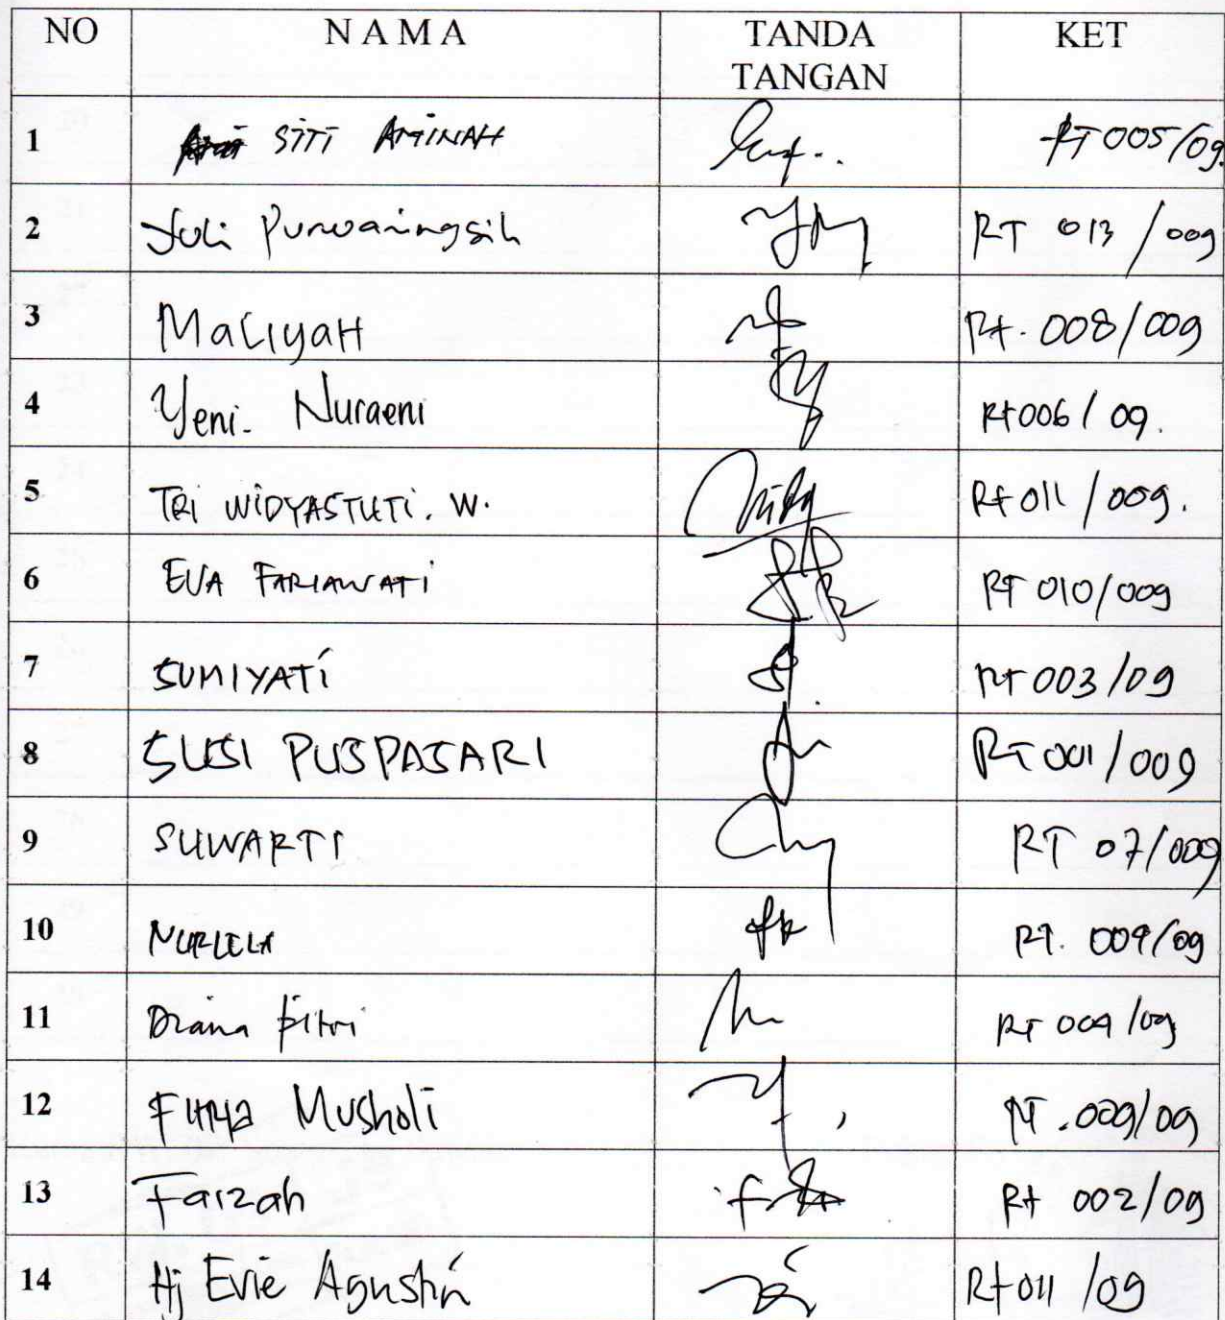 NO NAMA TANDA TANGAN KET
1 SITI AMINAH RT 005/09.
2 Juli Purwaningsih RT 013 / 009
3 MaLiyaH Rt. 008/009
4 Yeni. Nuraeni Rt006 / 09.
5 TRi WiDYASTUTi. W. Rt 011 / 009.
6 EVA FARIAWATi RT 010/009
7 SUMIYATi Rt 003/09
8 SUSI PUSPASARI RT 001/009
9 SUWARTI RT 07/009
10 NURLELA RT. 009/09
11 Diana Fitri RT 009/09
12 Musholi RT .009/09
13 Faizah Rt 002/09
14 Hj Evie Agustin Rt 011 /09